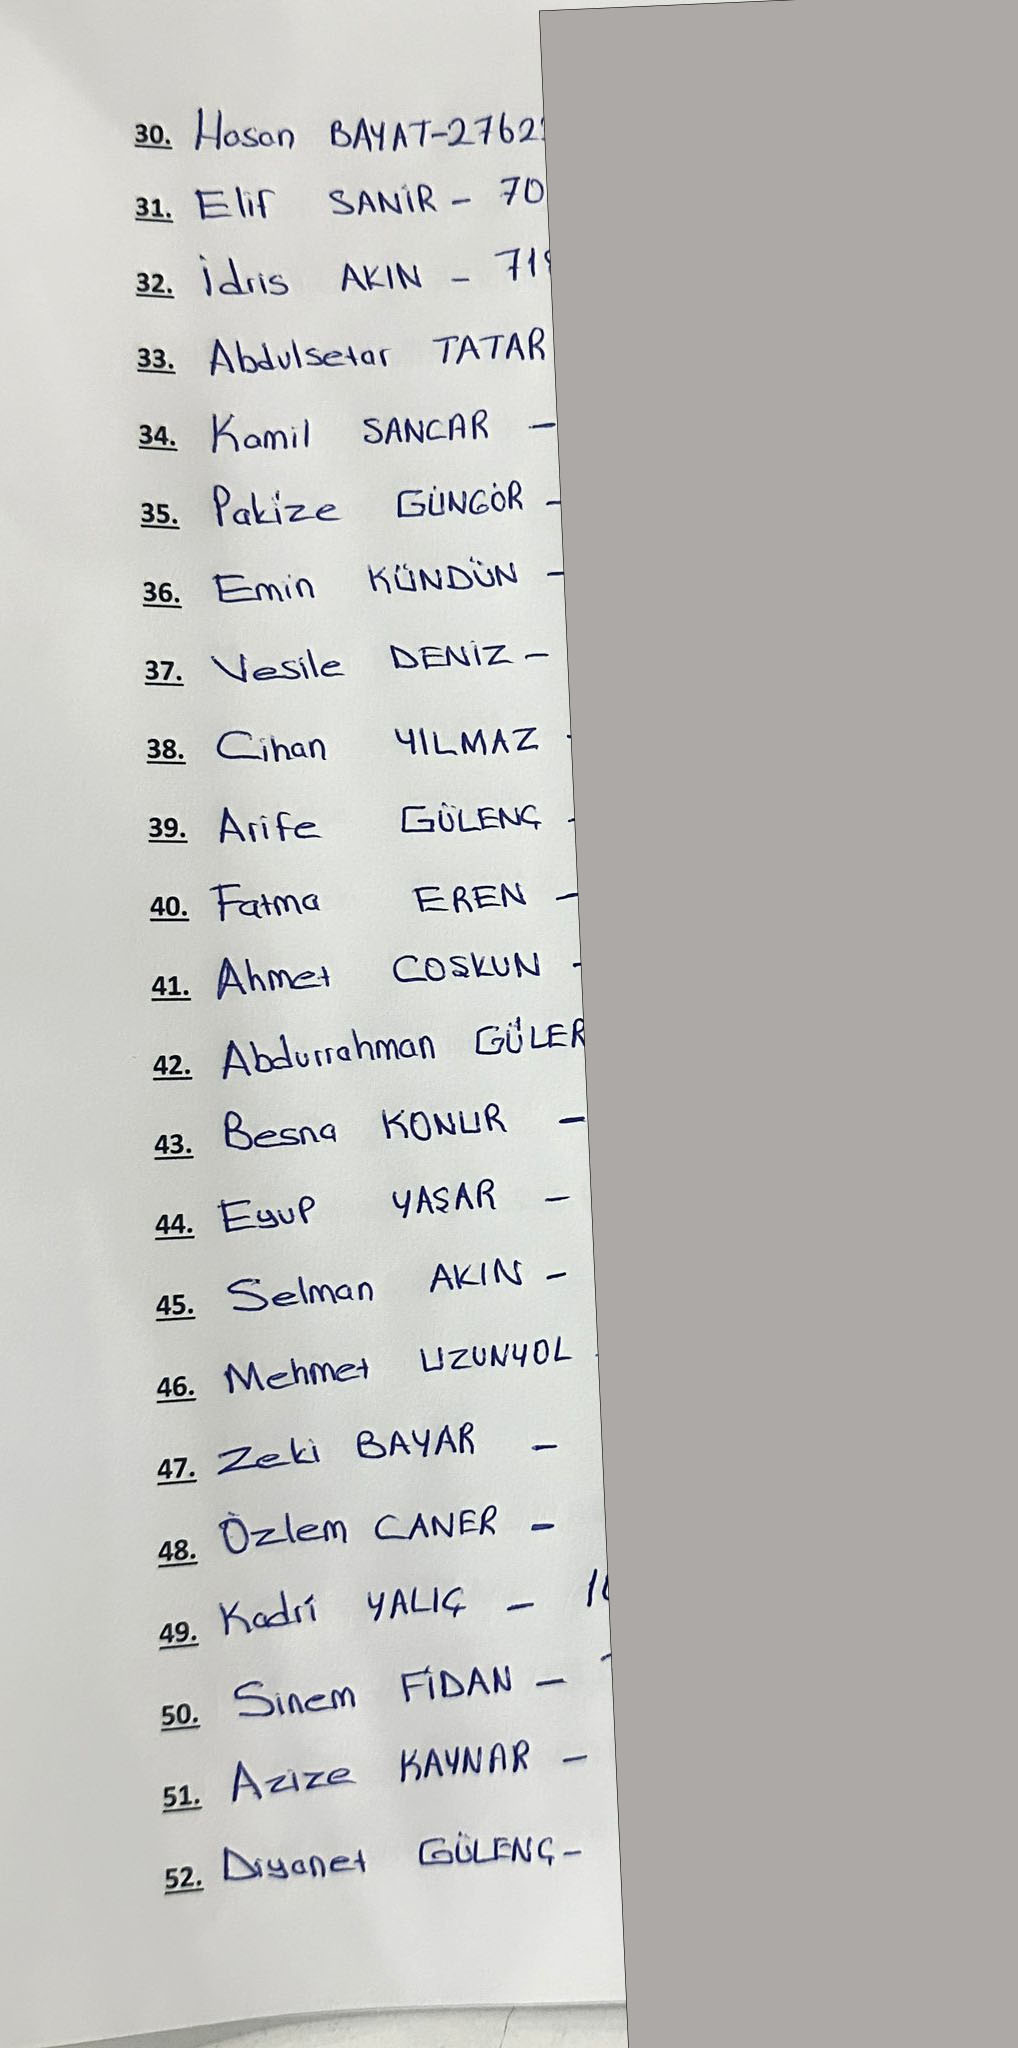 30. Hasan BAYAT-2762
31. Elif SANİR - 70
32. İdris AKIN - 71
33. Abdulsetar TATAR
34. Kamil SANCAR -
35. Pakize GÜNGÖR -
36. Emin KÜNDÜN -
37. Vesile DENİZ -
38. Cihan YILMAZ -
39. Arife GÜLENÇ -
40. Fatma EREN -
41. Ahmet COŞKUN -
42. Abdurrahman GÜLER
43. Besna KONUR -
44. Eyup YAŞAR -
45. Selman AKIN -
46. Mehmet UZUNYOL -
47. Zeki BAYAR -
48. Özlem CANER -
49. Kadri YALIÇ - 1
50. Sinem FİDAN -
51. Azize KAYNAR -
52. Diyanet GÜLENÇ-